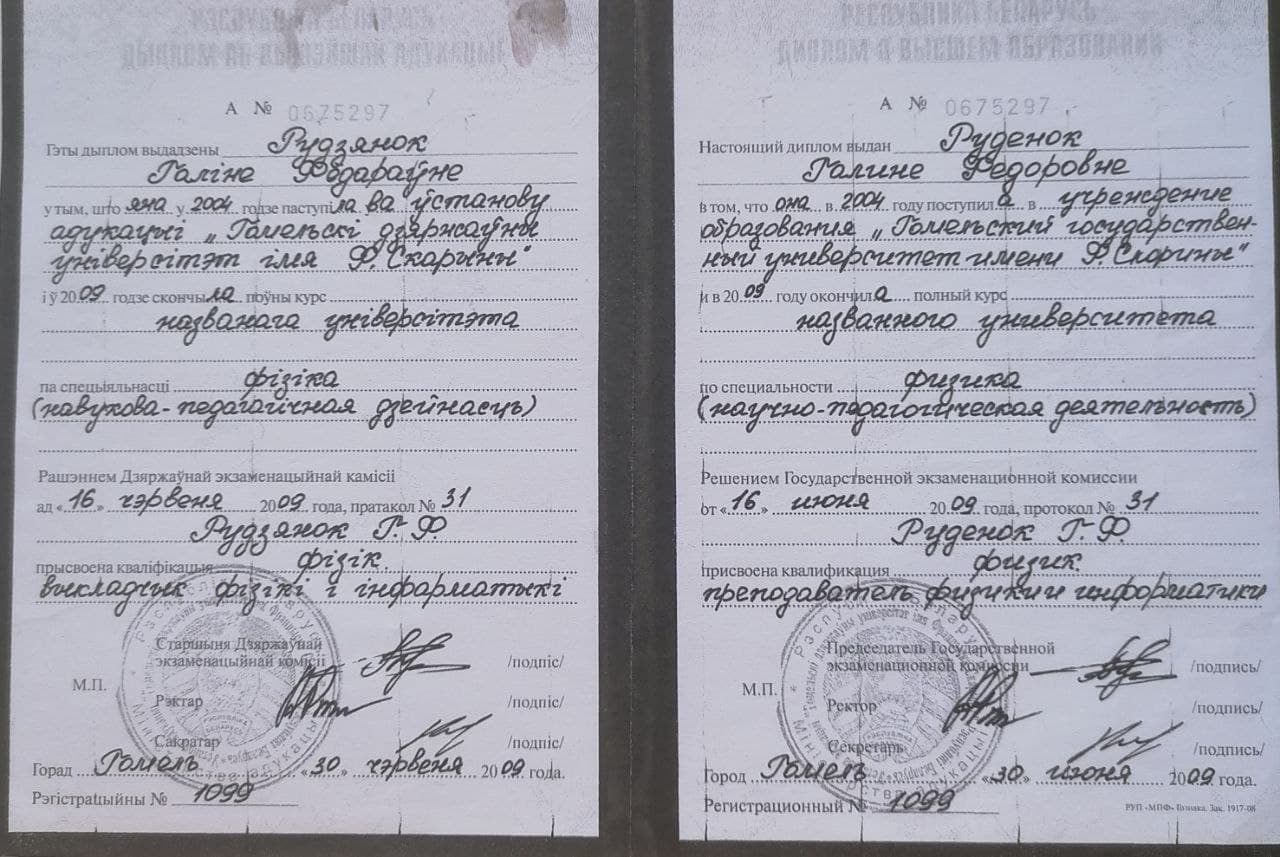 РЭСПУБЛІКА БЕЛАРУСЬ
ДЫПЛОМ АБ ВЫШЭЙШАЙ АДУКАЦЫІ
А № 0675297
Гэты дыплом выдадзены Рудзянок
Галіне Фёдараўне
у тым, што яна у 2004 годзе паступіла ва ўстанову
адукацыі „Гомельскі дзяржаўны
універсітэт імя Ф. Скарыны"
і ў 2009 годзе скончыла поўны курс
названага універсітэта
па спецыяльнасці фізіка
(навукова-педагагічная дзейнасць)
Рашэннем Дзяржаўнай экзаменацыйнай камісіі
ад «16» чэрвеня 2009 года, пратакол № 31
Рудзянок Г. Ф.
прысвоена кваліфікацыя фізік.
выкладчык фізікі і інфарматыкі
Старшыня Дзяржаўнай
экзаменацыйнай камісіі /подпіс/
М.П.
Рэктар /подпіс/
Сакратар /подпіс/
Горад Гомель «30» чэрвеня 2009 года.
Рэгістрацыйны № 1099
РЕСПУБЛИКА БЕЛАРУСЬ
ДИПЛОМ О ВЫСШЕМ ОБРАЗОВАНИИ
А № 0675297
Настоящий диплом выдан Руденок
Галине Федоровне
в том, что она в 2004 году поступила в учреждение
образования „Гомельский государствен-
ный университет имени Ф. Скорины"
и в 2009 году окончила полный курс
названного университета
по специальности физика
(научно-педагогическая деятельность)
Решением Государственной экзаменационной комиссии
от «16» июня 2009 года, протокол № 31
Руденок Г. Ф.
присвоена квалификация физик.
преподаватель физики и информатики
Председатель Государственной
экзаменационной комиссии /подпись/
М.П.
Ректор /подпись/
Секретарь /подпись/
Город Гомель «30» июня 2009 года.
Регистрационный № 1099
РУП «МПФ» Гознака. Зак. 1917-08